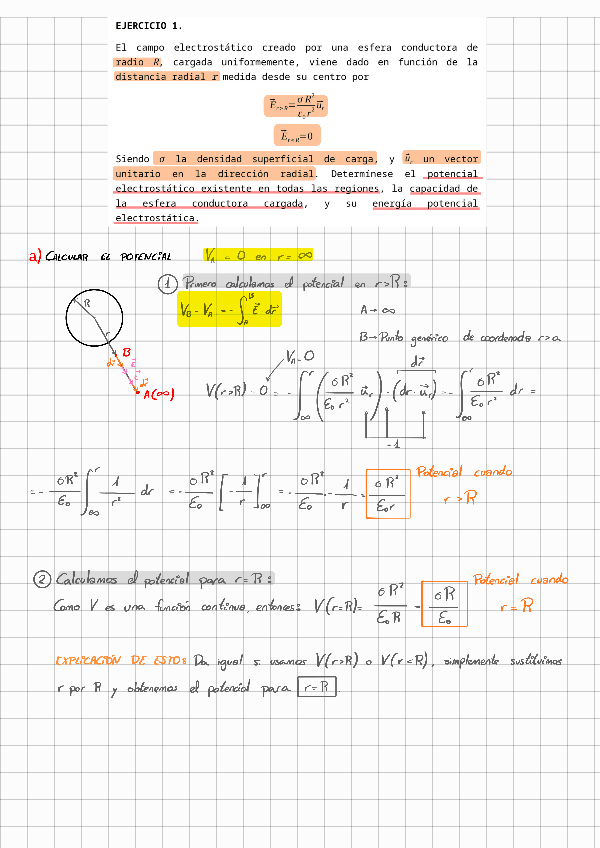 EJERCICIO 1.
El campo electrostático creado por una esfera conductora de
radio R, cargada uniformemente, viene dado en función de la
distancia radial r medida desde su centro por
E⃗ r>R = σ R² / ε₀ r² u⃗r
E⃗ r<R = 0
Siendo σ la densidad superficial de carga, y u⃗r un vector
unitario en la dirección radial. Determínese el potencial
electrostático existente en todas las regiones, la capacidad de
la esfera conductora cargada, y su energía potencial
electrostática.
a) CALCULAR EL POTENCIAL V_A = 0 en r = ∞
① Primero calculamos el potencial en r>R:
V_B - V_A = - ∫_A^B E⃗ dr⃗ A → ∞
B → Punto genérico de coordenada r>a
R
r
B
dr⃗
E⃗
A(∞)
V_A = 0 dr⃗
V(r>R) - 0 = - ∫_∞^r (σR² / ε₀ r² u⃗r) · (dr · u⃗r) = - ∫_∞^r σR² / ε₀ r² dr =
1
= - σR² / ε₀ ∫_∞^r 1 / r² dr = - σR² / ε₀ [- 1 / r]_∞^r = - σR² / ε₀ · - 1 / r = σR² / ε₀r Potencial cuando
r > R
② Calculamos el potencial para r = R: Potencial cuando
Como V es una función continua, entonces: V(r=R) = σR² / ε₀ R = σR / ε₀ r = R
EXPLICACIÓN DE ESTO: Da igual si usamos V(r>R) o V(r<R), simplemente sustituimos
r por R y obtenemos el potencial para r = R.